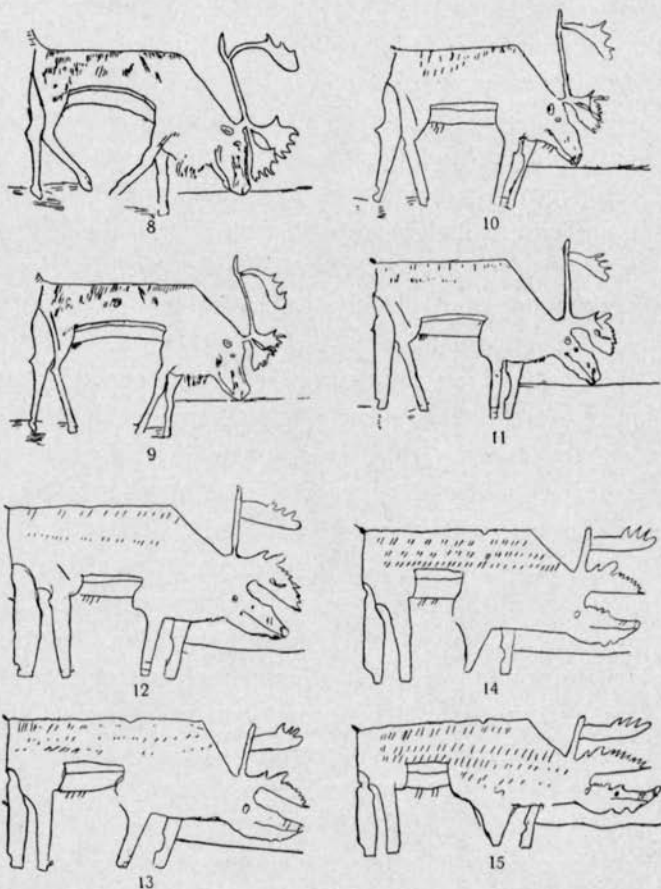 8
10
9
11
12
14
13
15